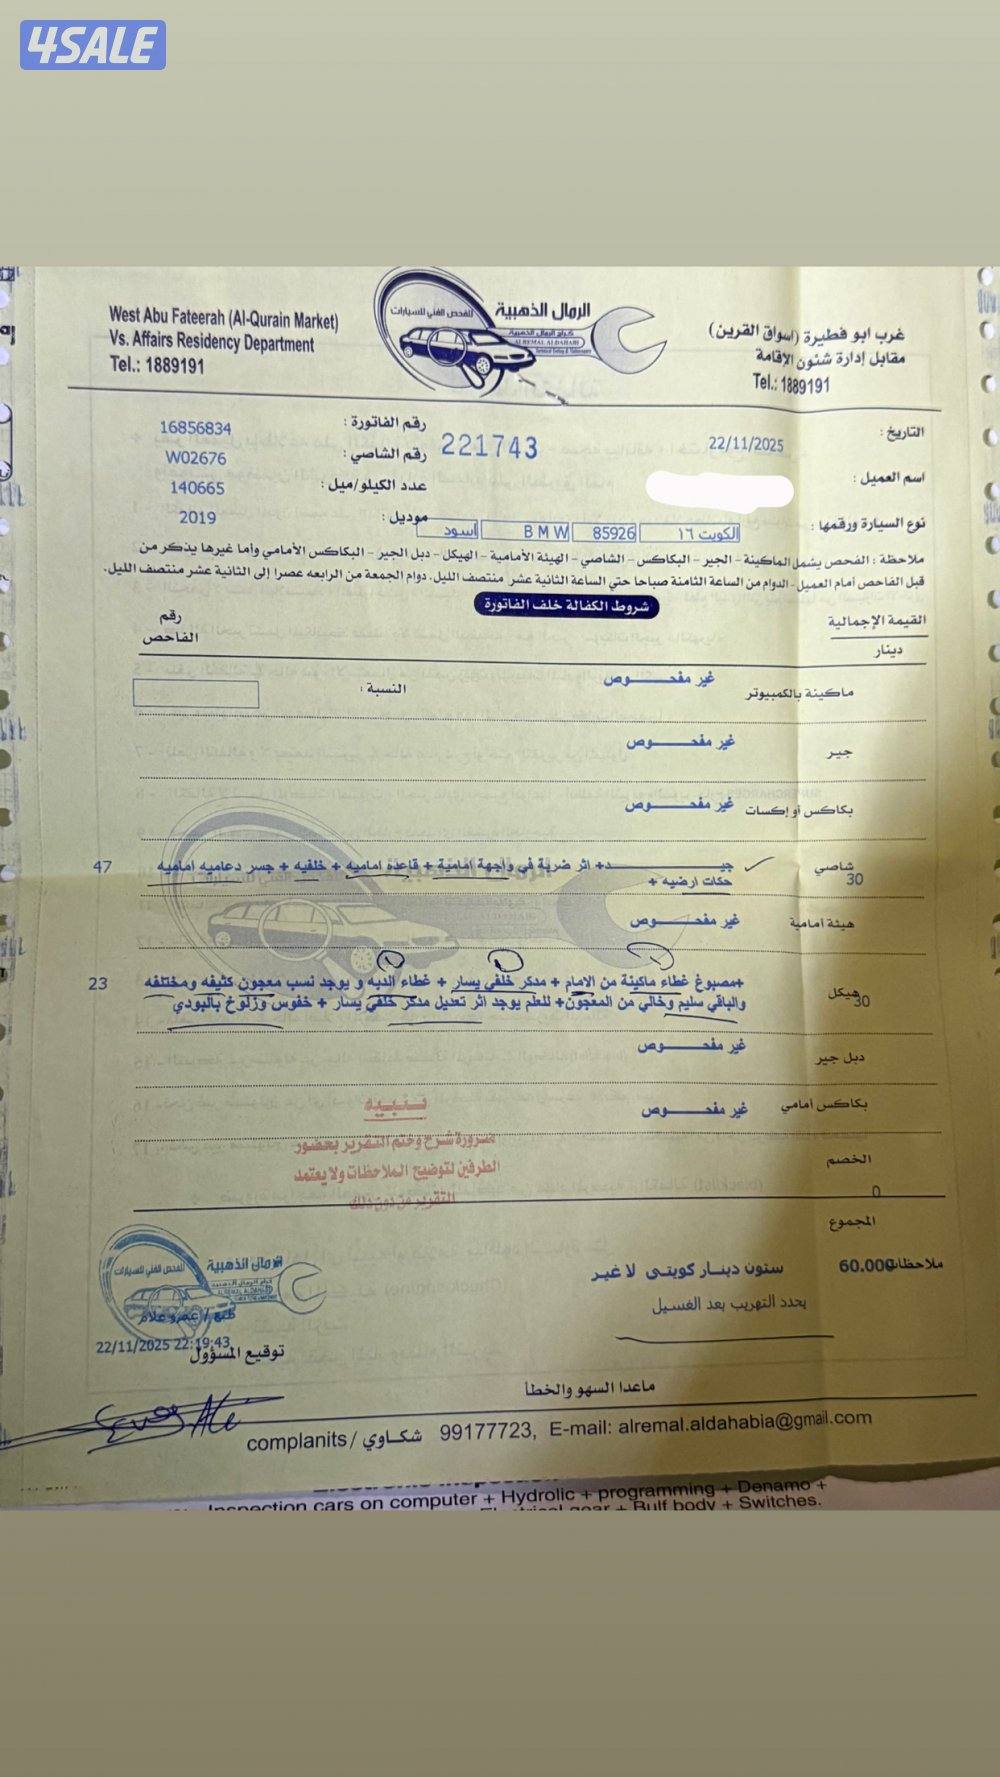 4SALE
West Abu Fateerah (Al-Qurain Market)
Vs. Affairs Residency Department
Tel.: 1889191
للفحص الفني للسيارات
الرمال الذهبية
كراج الرمال الذهبية
AL REMAL ALDAHABI
غرب ابو فطيرة (اسواق القرين)
مقابل إدارة شئون الإقامة
Tel.: 1889191
التاريخ : 22/11/2025
221743
رقم الفاتورة : 16856834
رقم الشاصي : W02676
اسم العميل :
عدد الكيلو/ميل : 140665
نوع السيارة ورقمها : الكويت ١٦ 85926 BMW أسود
موديل : 2019
ملاحظة : الفحص يشمل الماكينة - الجير - البكاكس - الشاصي - الهيئة الأمامية - الهيكل - دبل الجير - البكاكس الأمامي وأما غيرها يذكر من
قبل الفاحص أمام العميل - الدوام من الساعة الثامنة صباحا حتي الساعة الثانية عشر منتصف الليل. دوام الجمعة من الرابعه عصرا إلى الثانية عشر منتصف الليل.
شروط الكفالة خلف الفاتورة
القيمة الإجمالية
دينار
رقم
الفاحص
ماكينة بالكمبيوتر غير مفحوص النسبة :
جير غير مفحوص
بكاكس أو إكسات غير مفحوص
شاصي 30 جيد+ اثر ضربة في واجهة امامية + قاعده اماميه + خلفيه + جسر دعاميه اماميه 47
حكات ارضيه +
هيئة أمامية غير مفحوص
هيكل 30 +مصبوغ غطاء ماكينة من الامام + مدكر خلفي يسار + غطاء الدبه و يوجد نسب معجون كثيفه ومختلفه 23
والباقي سليم وخالي من المعجون+ للعلم يوجد اثر تعديل مدكر خلفي يسار + خفوس وزلوخ بالبودي
دبل جير غير مفحوص
بكاكس أمامي غير مفحوص
تنبيه
ضرورة شرح وختم التقرير بحضور
الطرفين لتوضيح الملاحظات ولا يعتمد
التقرير من دون ذلك
الخصم
0
المجموع
ملاحظات 60.000 ستون دينار كويتى لا غير
يحدد التهريب بعد الغسيل
الرمال الذهبية
للفحص الفني للسيارات
طبع / عمرو علام
22/11/2025 22:19:43
توقيع المسؤول
ماعدا السهو والخطأ
complanits / شكاوي 99177723, E-mail: alremal.aldahabia@gmail.com
Inspection cars on computer + Hydrolic + programming + Denamo +
Electrical gear + Bulf body + Switches.